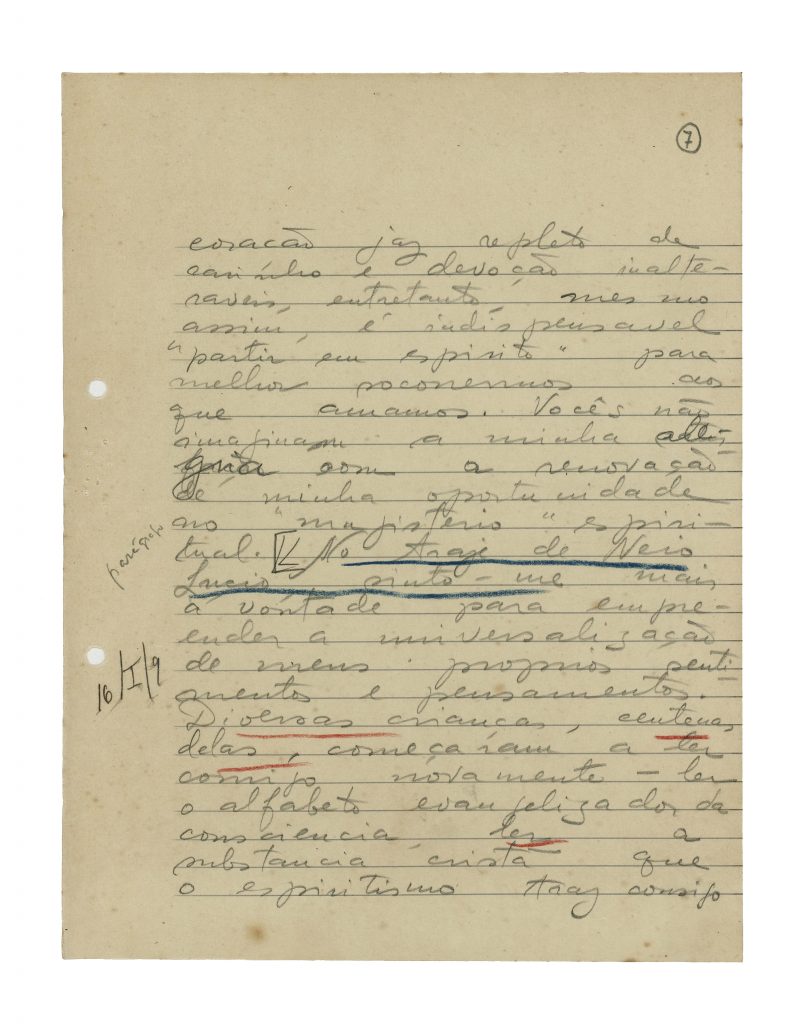 7
coracão jaz repleto de
carinho e devoção inalte-
raveis, entretanto, mesmo
assim, é indispensavel
"partir em espirito" para
melhor socorrermos aos
que amamos. Vocês não
imaginam a minha ale-
gria com a renovação
de minha oportunidade
no "magistério" espiri-
parágrafo
tual. [ No traje de Neio
Lucio, sinto-me mais
á vontade para empre-
ender a universalização
de meus proprios senti
16/I/9
mentos e pensamentos.
Diversas crianças, centenas
delas, começaram a ler
comigo novamente - ler
o alfabeto evangelizador da
consciencia, ler a
substancia cristã que
o espiritismo traz consigo